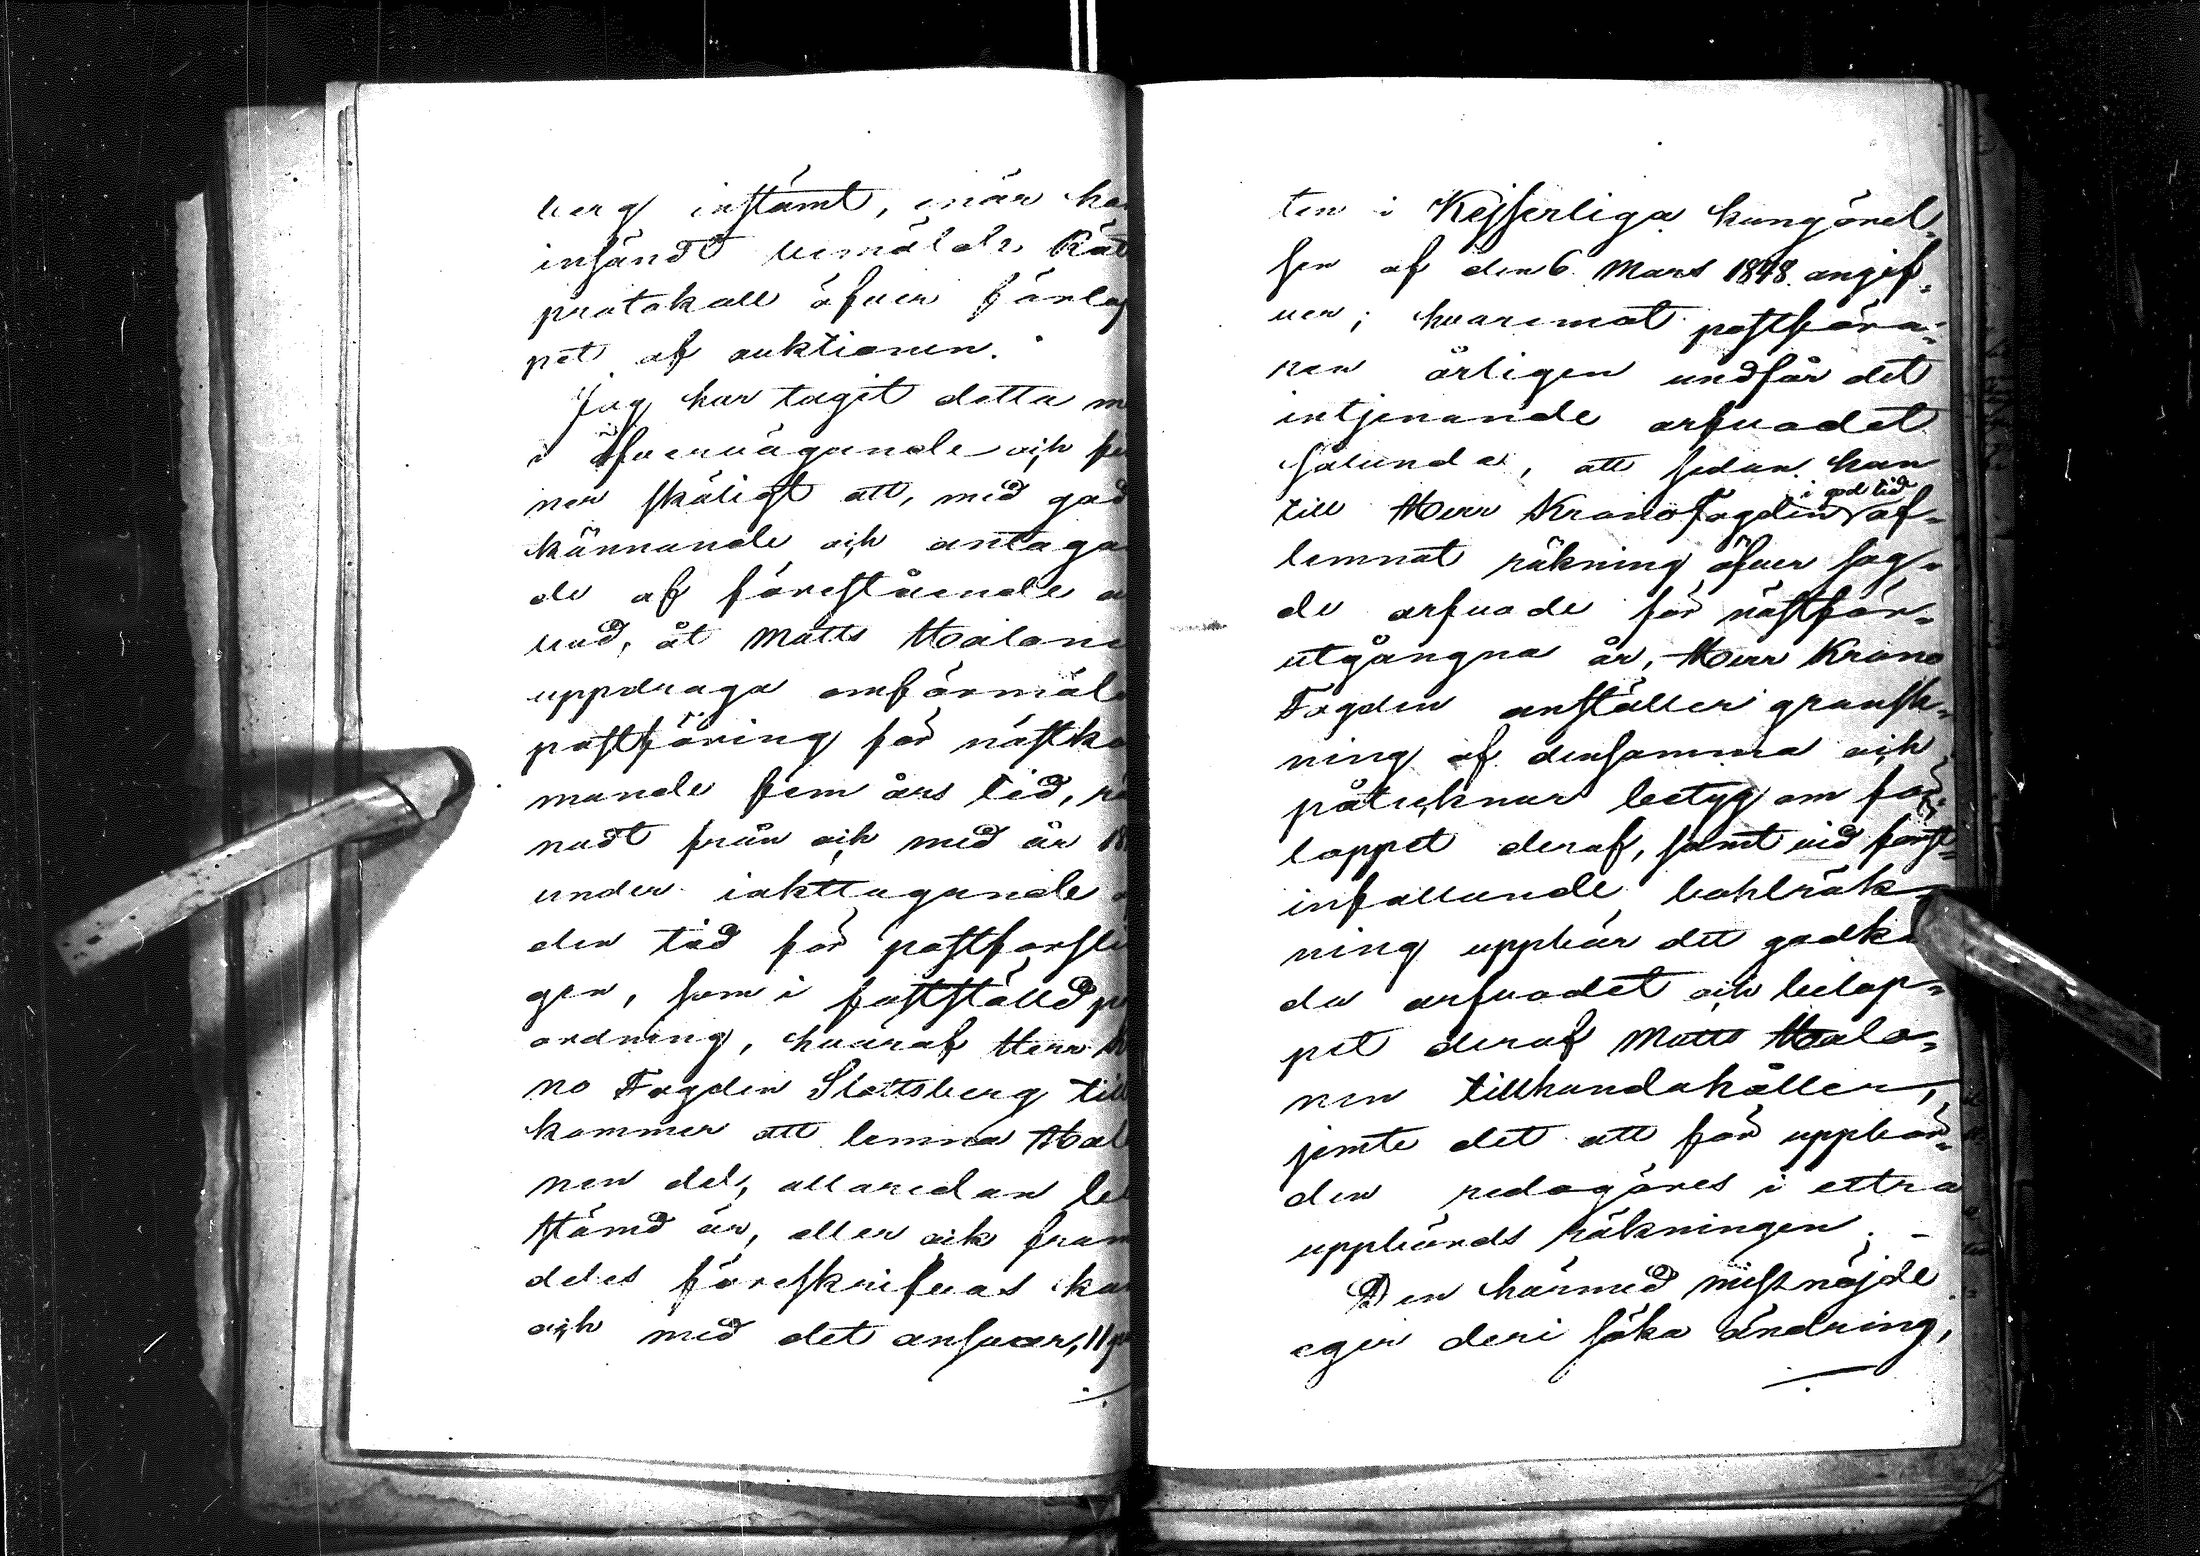 berg instämt, när
insändt bemälde
protokoll öfver förlop
pet af auktionen.
Jag har tagit detta
i öfvervägande och
ner skäligt att, med god
kännande och antaga
de af förestående
bud, åt Matts
uppdraga omförmäl
postföring för nästko
mande fem års tid, rä
nadt från och med år 18
under iakttagande
den tid för postforsli
gen, som i fastställd
ordning, hvaraf Herr
no Fogden Slottsberg till
kommer att lemna
nen del, allaredan be
stämd är, eller ock fram
deles föreskrifvas kan
och med det ansvar,
ten i Kejserliga kungörel„
sen af den 6 Mars 1848 angif„
ver; hvaremot postföra„
ren årligen undfår det
intjenande arfvodet
sålunda, att sedan han
till Herr Krono Fogden i god tid af„
lemnat räkning öfver sag„
de arfvode för nästför„
utgångna år, Herr Krono
Fogden anställer gransk„
ning af densamma och
påtecknar betyg om för„
loppet deraf, samt vid först„
infallande bokräk„
ning uppbär det godkän
da arfvodet och belop„
pet deraf Matts Halo„
nen tillhandahåller,
jemte det att för uppbör„
den redogöres i extra
uppbörds räkningen. –
Den härmed missnöjde
eger deri söka ändring,